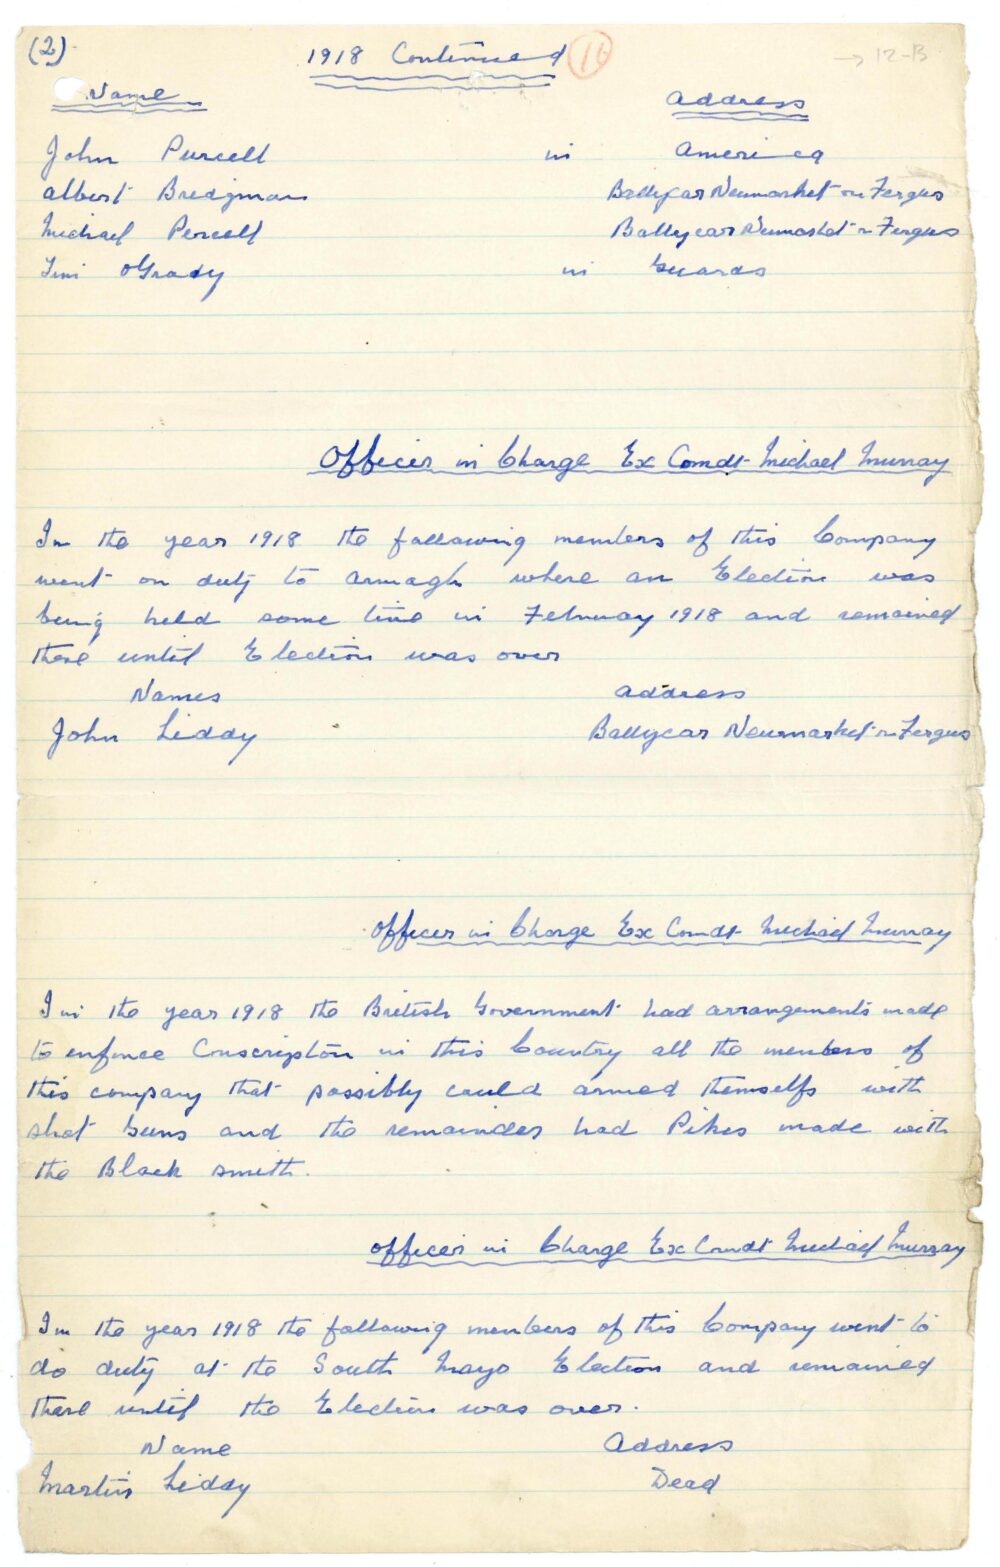 (2) 1918 Continued 16 → 12-B
Name Address
John Purcell in America
Albert Bredgman Ballycar Newmarket on Fergus
Michael Percell Ballycar Newmarket on Fergus
Jim OGrady in Guards
Officer in Charge Ex Comdt Michael Murray
In the year 1918 the following members of this Company
went on duty to Armagh where an Election was
being held some time in February 1918 and remained
there until Election was over
Names Address
John Liddy Ballycar Newmarket on Fergus
Officer in Charge Ex Comdt Michael Murray
In the year 1918 the British Government had arrangements made
to enforce Conscripton in this Country all the members of
this company that possibly could armed themselfs with
shot Guns and the remainder had Pikes made with
the Black smith.
Officer in Charge Ex Comdt Michael Murray
In the year 1918 the following members of this Company went to
do duty at the South Mayo Election and remained
there until the Election was over.
Name Address
Martin Liddy Dead